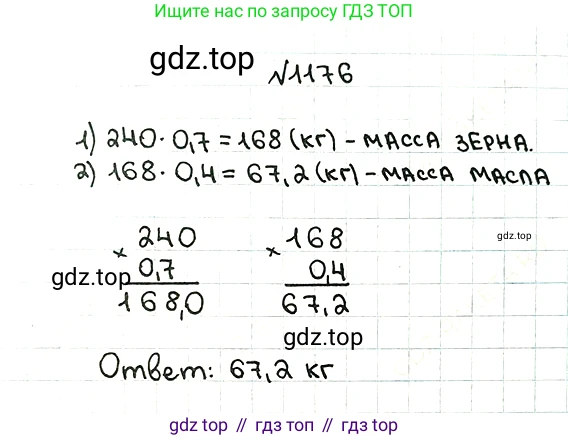 Ищите нас по запросу ГДЗ ТОП
gdz.top
№1176
1) 240 · 0,7 = 168 (кг) - МАССА ЗЕРНА.
2) 168 · 0,4 = 67,2 (кг) - МАССА МАСЛА
× 240
0,7
168,0
× 168
0,4
67,2
gdz.top
gdz.top
gdz.top
Ответ: 67,2 кг
gdz top // гдз топ // gdz.top